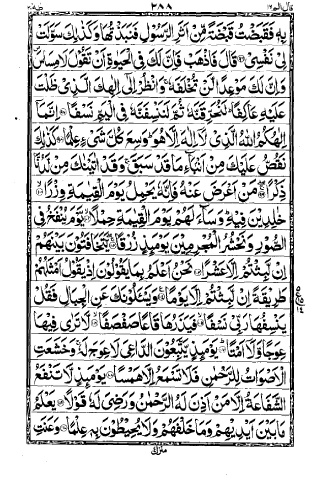 قال الم ١٦ ٢٨٨ طٰهٰ ٢٠
بِهٖ فَقَبَضْتُ قَبْضَةً مِّنْ اَثَرِ الرَّسُوْلِ فَنَبَذْتُهَا وَكَذٰلِكَ سَوَّلَتْ
لِيْ نَفْسِيْ قَالَ فَاذْهَبْ فَاِنَّ لَكَ فِي الْحَيٰوةِ اَنْ تَقُوْلَ لَا مِسَاسَ
وَاِنَّ لَكَ مَوْعِدًا لَّنْ تُخْلَفَهٗ وَانْظُرْ اِلٰٓى اِلٰهِكَ الَّذِيْ ظَلْتَ
عَلَيْهِ عَاكِفًا لَنُحَرِّقَنَّهٗ ثُمَّ لَنَنْسِفَنَّهٗ فِي الْيَمِّ نَسْفًا اِنَّمَآ
اِلٰهُكُمُ اللّٰهُ الَّذِيْ لَآ اِلٰهَ اِلَّا هُوَ وَسِعَ كُلَّ شَيْءٍ عِلْمًا كَذٰلِكَ
نَقُصُّ عَلَيْكَ مِنْ اَنْۢبَآءِ مَا قَدْ سَبَقَ وَقَدْ اٰتَيْنٰكَ مِنْ لَّدُنَّا
ذِكْرًا مَنْ اَعْرَضَ عَنْهُ فَاِنَّهٗ يَحْمِلُ يَوْمَ الْقِيٰمَةِ وِزْرًا
خٰلِدِيْنَ فِيْهِ وَسَآءَ لَهُمْ يَوْمَ الْقِيٰمَةِ حِمْلًا يَّوْمَ يُنْفَخُ فِي
الصُّوْرِ وَنَحْشُرُ الْمُجْرِمِيْنَ يَوْمَئِذٍ زُرْقًا يَّتَخَافَتُوْنَ بَيْنَهُمْ
اِنْ لَّبِثْتُمْ اِلَّا عَشْرًا نَحْنُ اَعْلَمُ بِمَا يَقُوْلُوْنَ اِذْ يَقُوْلُ اَمْثَلُهُمْ
طَرِيْقَةً اِنْ لَّبِثْتُمْ اِلَّا يَوْمًا وَيَسْـَٔلُوْنَكَ عَنِ الْجِبَالِ فَقُلْ
يَنْسِفُهَا رَبِّيْ نَسْفًا فَيَذَرُهَا قَاعًا صَفْصَفًا لَّا تَرٰى فِيْهَا
عِوَجًا وَّلَآ اَمْتًا يَوْمَئِذٍ يَّتَّبِعُوْنَ الدَّاعِيَ لَا عِوَجَ لَهٗ وَخَشَعَتِ
الْاَصْوَاتُ لِلرَّحْمٰنِ فَلَا تَسْمَعُ اِلَّا هَمْسًا يَوْمَئِذٍ لَّا تَنْفَعُ
الشَّفَاعَةُ اِلَّا مَنْ اَذِنَ لَهُ الرَّحْمٰنُ وَرَضِيَ لَهٗ قَوْلًا يَعْلَمُ
مَا بَيْنَ اَيْدِيْهِمْ وَمَا خَلْفَهُمْ وَلَا يُحِيْطُوْنَ بِهٖ عِلْمًا وَعَنَتِ